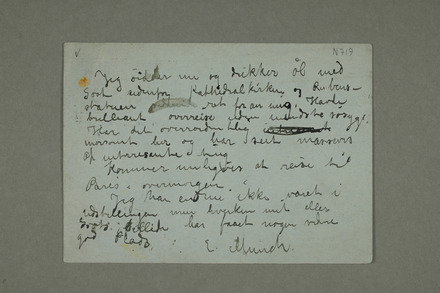 N 719
Jeg sidder nu og drikker öl med
Goet udenfor Kathedralkirken og Rubens-
statuen ret foran mig. Havde
brilliant overreise uden mindste søsyge.
Har det overordentlig
morsomt her og har seet massevis
af interessante ting
Kommer muligvis at reise til
Paris i overmorgen.
Jeg har endnu ikke været i
udstillingen men hverken mit eller
billede har faaet nogen videre
god plads.
E. Munch.